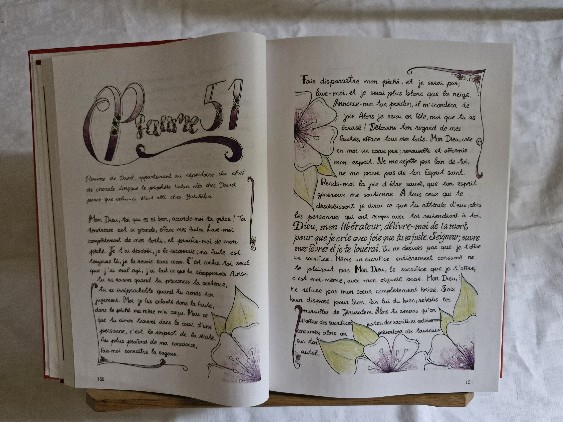 Psaume 51
Psaume de David, appartenant au répertoire du chef
de chorale. Lorsque le prophète Natan alla chez David
parce que celui-ci était allé chez Batchéba.
Mon Dieu, toi qui es si bon, accorde-moi ta grâce ! Ta
tendresse est si grande, efface mes fautes. Lave-moi
complètement de mes torts, et purifie-moi de mon
péché. Je t'ai désobéi, je le reconnais; ma faute est
toujours là, je la revois sans cesse. C'est contre toi seul
que j'ai mal agi, j'ai fait ce que tu désapprouves. Ainsi
tu as raison quand tu prononces ta sentence,
tu es irréprochable quand tu rends ton
jugement. Moi je suis enfoncé dans la faute,
dans le péché ma mère m'a conçu. Mais ce
que tu aimes trouver dans le cœur d'une
personne, c'est le respect de la vérité.
Au plus profond de ma conscience,
fais-moi connaître la sagesse.
Fais disparaître mon péché, et je serai pur,
lave-moi, et je serai plus blanc que la neige.
Annonce-moi ton pardon, il m'inondera de
joie. Alors je serai en fête, moi que tu as
écrasé ! Détourne ton regard de mes
fautes, efface tous mes torts. Mon Dieu, crée
en moi un cœur pur; renouvelle et affermis
mon esprit. Ne me rejette pas loin de toi,
ne me prive pas de ton Esprit saint.
Rends-moi la joie d'être sauvé, que ton esprit
généreux me soutienne. À tous ceux qui te
désobéissent je dirai ce que tu attends d'eux; alors
les personnes qui ont rompu avec toi reviendront à toi.
Dieu, mon libérateur, délivre-moi de la mort,
pour que je crie avec joie que tu es juste. Seigneur, ouvre
mes lèvres et je te louerai. Tu ne désires pas que je t'offre
un sacrifice. Même un sacrifice entièrement consumé ne
te plairait pas. Mon Dieu, le sacrifice que je t'offre,
c'est moi-même, avec mon orgueil brisé. Mon Dieu,
ne refuse pas mon cœur complètement brisé. Sois
bien disposé pour Sion, fais lui du bien, rebâtis les
murailles de Jérusalem. Alors tu aimeras qu'on
t'offre des sacrifices
autel.